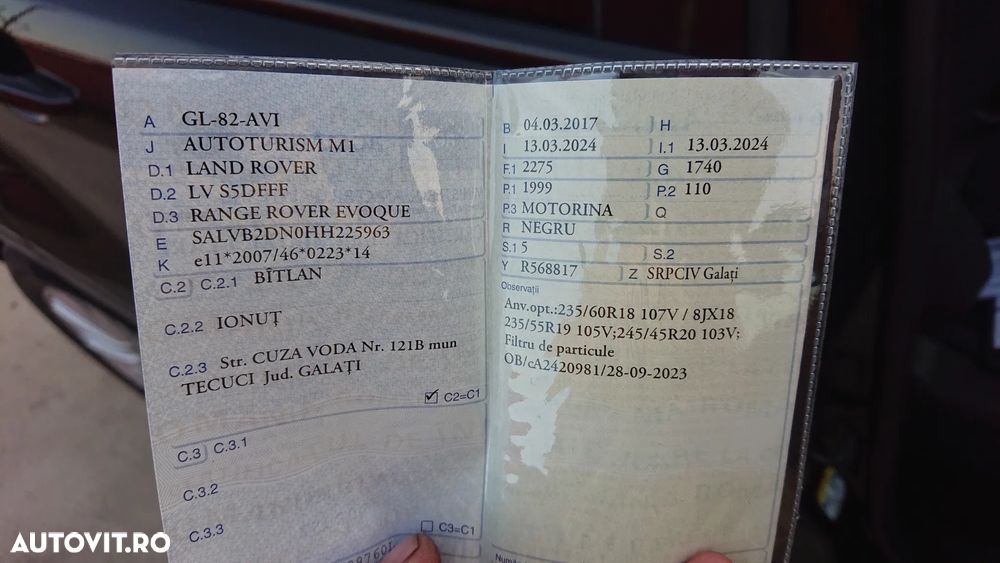 A GL-82-AVI
J AUTOTURISM M1
D.1 LAND ROVER
D.2 LV S5DFFF
D.3 RANGE ROVER EVOQUE
E SALVB2DN0HH225963
K e11*2007/46*0223*14
C.2 C.2.1 BÎTLAN
C.2.2 IONUȚ
C.2.3 Str. CUZA VODA Nr. 121B mun
TECUCI Jud. GALAȚI
C2=C1
C.3 C.3.1
C.3.2
C.3.3
C3=C1
B 04.03.2017 H
I 13.03.2024 I.1 13.03.2024
F.1 2275 G 1740
P.1 1999 P.2 110
P.3 MOTORINA Q
R NEGRU
S.1 5 S.2
Y R568817 Z SRPCIV Galați
Observații
Anv.opt.:235/60R18 107V / 8JX18
235/55R19 105V;245/45R20 103V;
Filtru de particule
OB/cA2420981/28-09-2023
AUTOVIT.RO